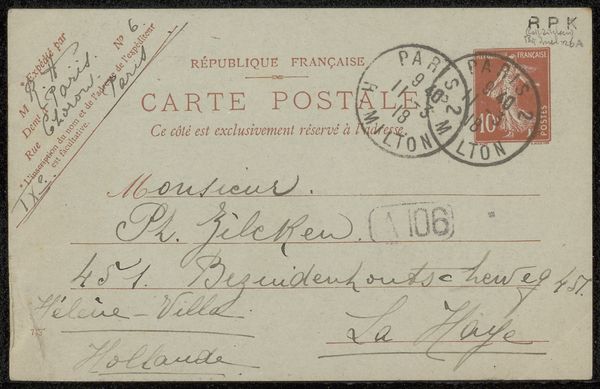 R P K
Expédié par Nº 6.
M R W
Demt Paris
Rue Choron. Paris
* L'inscription du nom et de l'adresse de l'expéditeur
est facultative.
IXe
RÉPUBLIQUE FRANÇAISE
CARTE POSTALE
Ce côté est exclusivement réservé à l'adresse.
PARIS 2
9 40
11-3
18
R. MILTON
PARIS 2
9 40
18
R. MILTON
10
POSTES
Monsieur.
Ph. Zilcken.
A 106
451. Bezuidenhoutscheweg 451.
Hélène-Villa
La Haye
Hollande